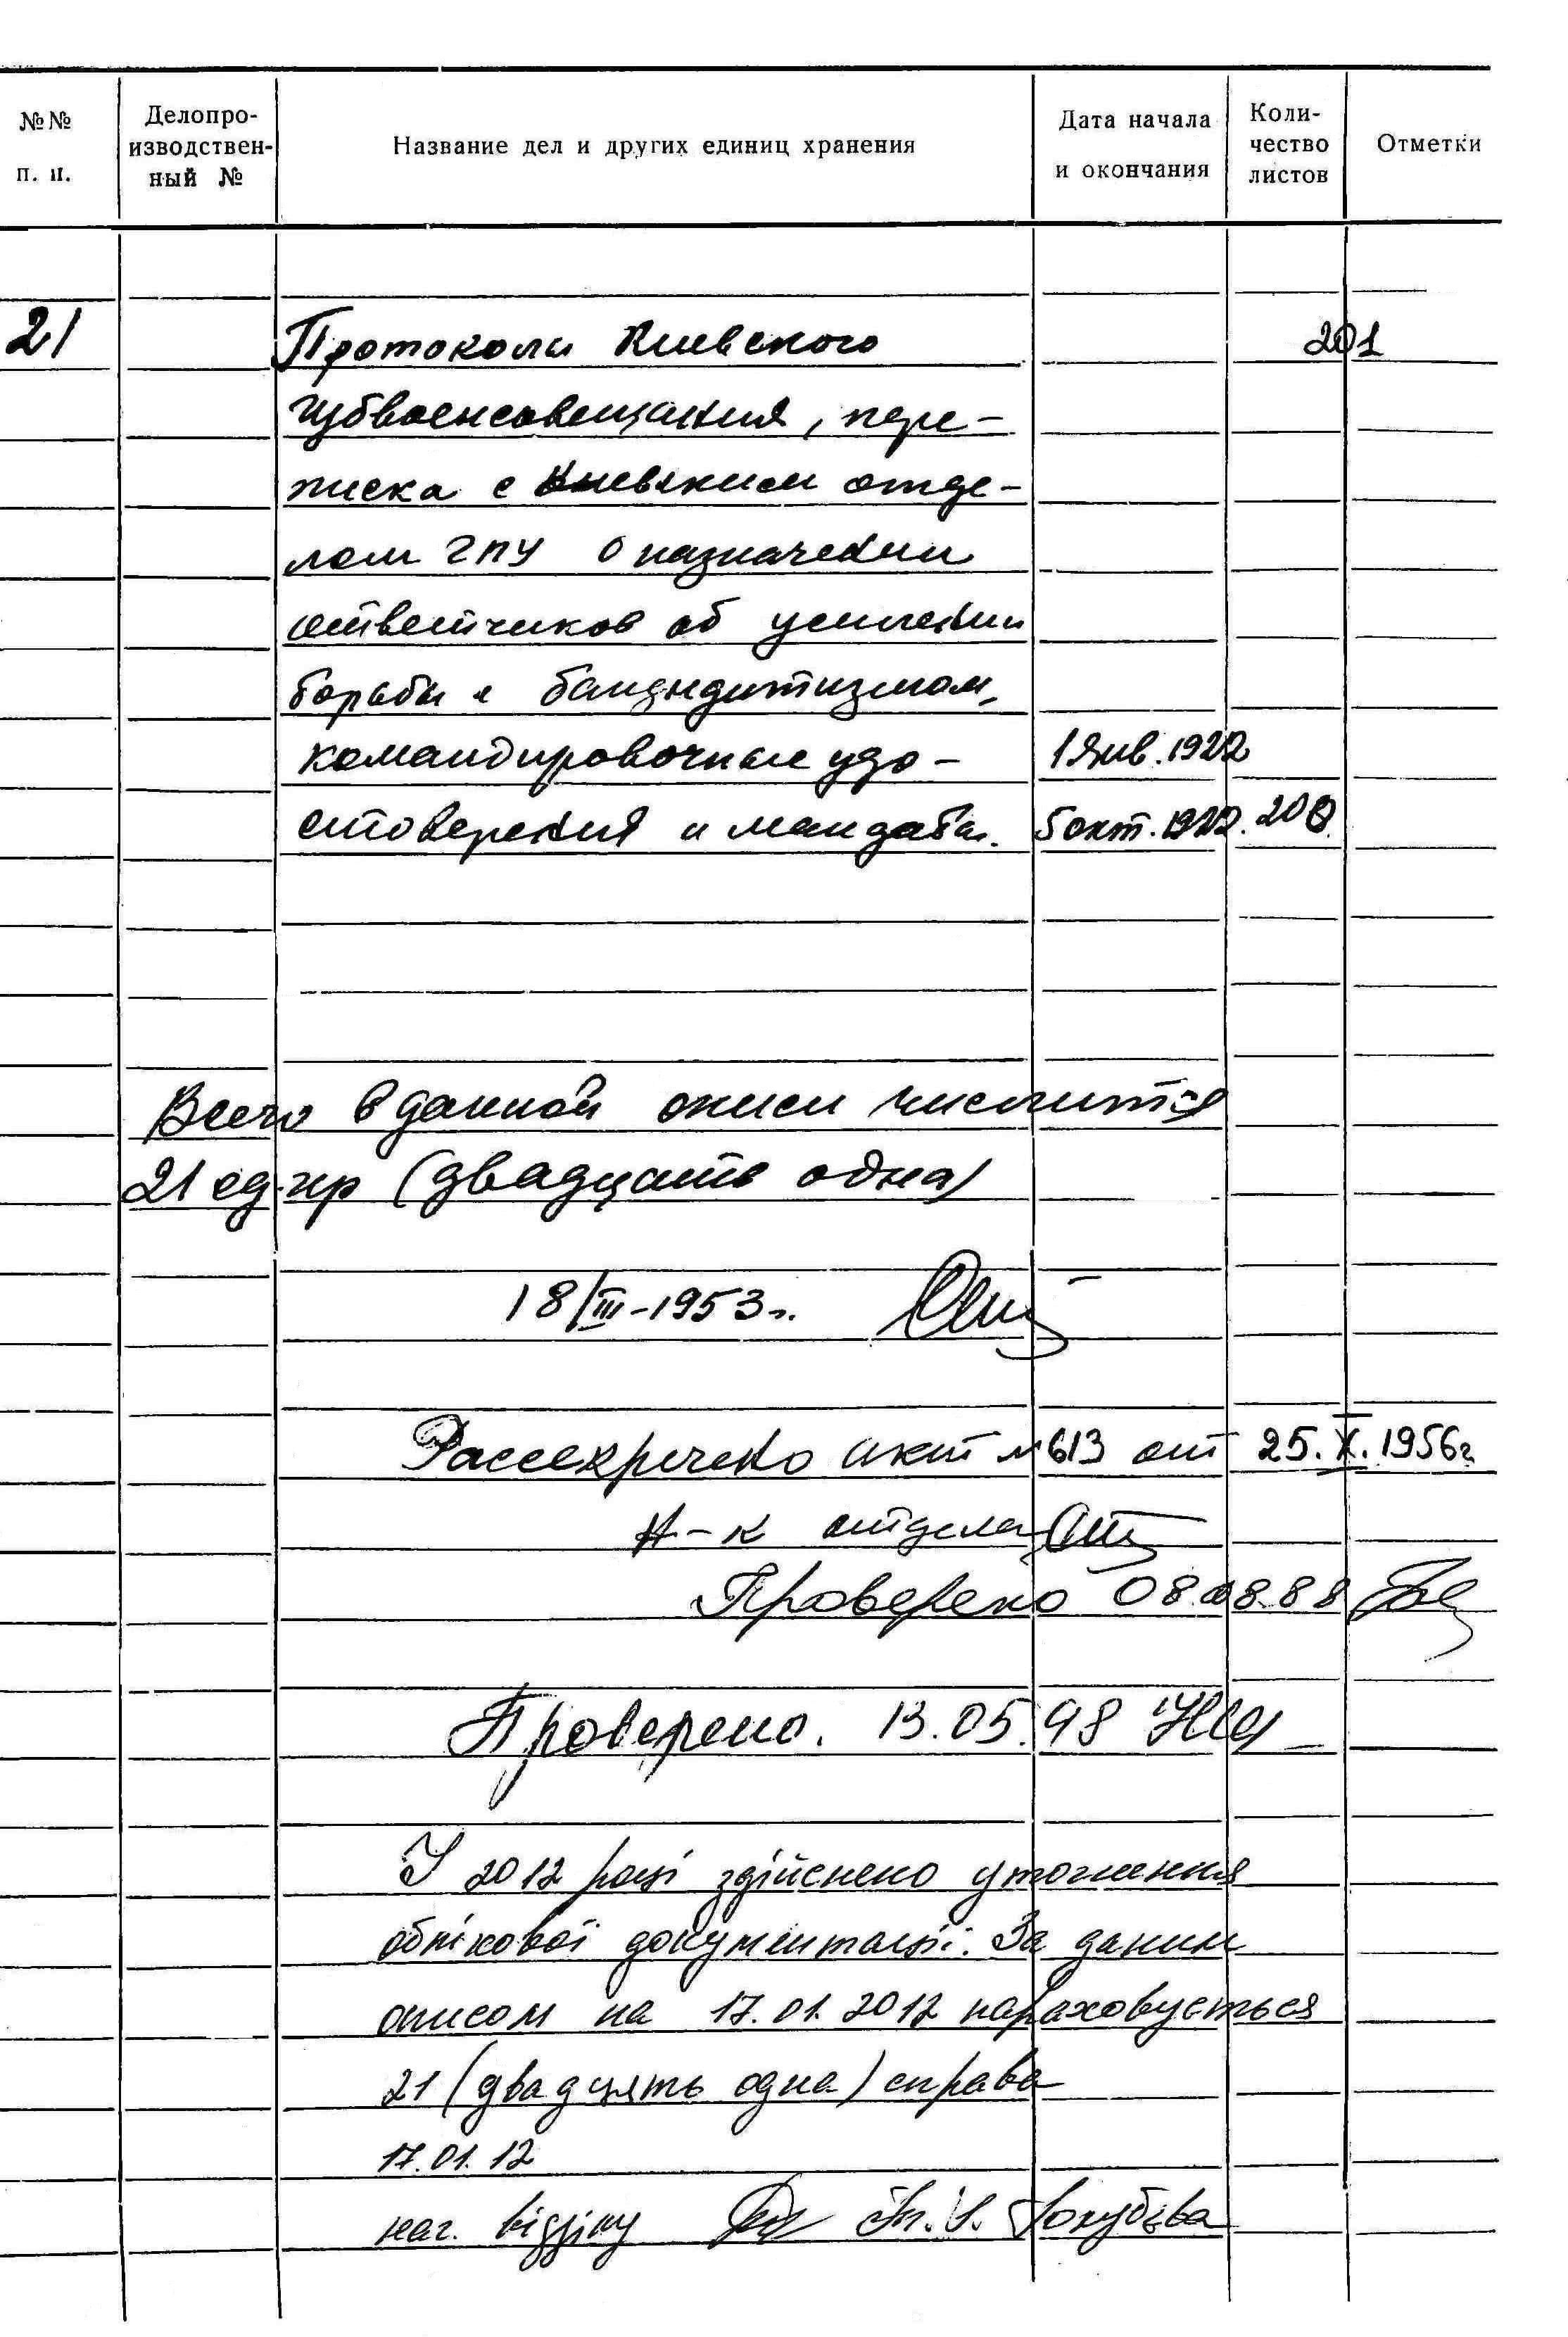 №№ п. п.
Делопро-
изводствен-
ный №
Название дел и других единиц хранения
Дата начала
и окончания
Коли-
чество
листов
Отметки
21 Протоколы Киевского 201
губвоенсовещания, пере-
писка с Киевским отде-
лом ГПУ о назначении
ответчиков об усилении
борьбы с бандитизмом,
командировочные удо- 1 янв. 1922
стоверения и мандаты. 5 окт. 1922. 200
Всего в данной описи числится
21 ед. хр (двадцать одна)
18/III-1953 г.
Рассекречено акт №613 от 25.X.1956г
Н-к отдела
Проверено 08.08.88
Проверено. 13.05.98
У 2012 році здійснено уточнення
облікової документації. За даним
описом на 17.01.2012 нараховується
21 (двадцять одна) справа
17.01.12
нач. відділу